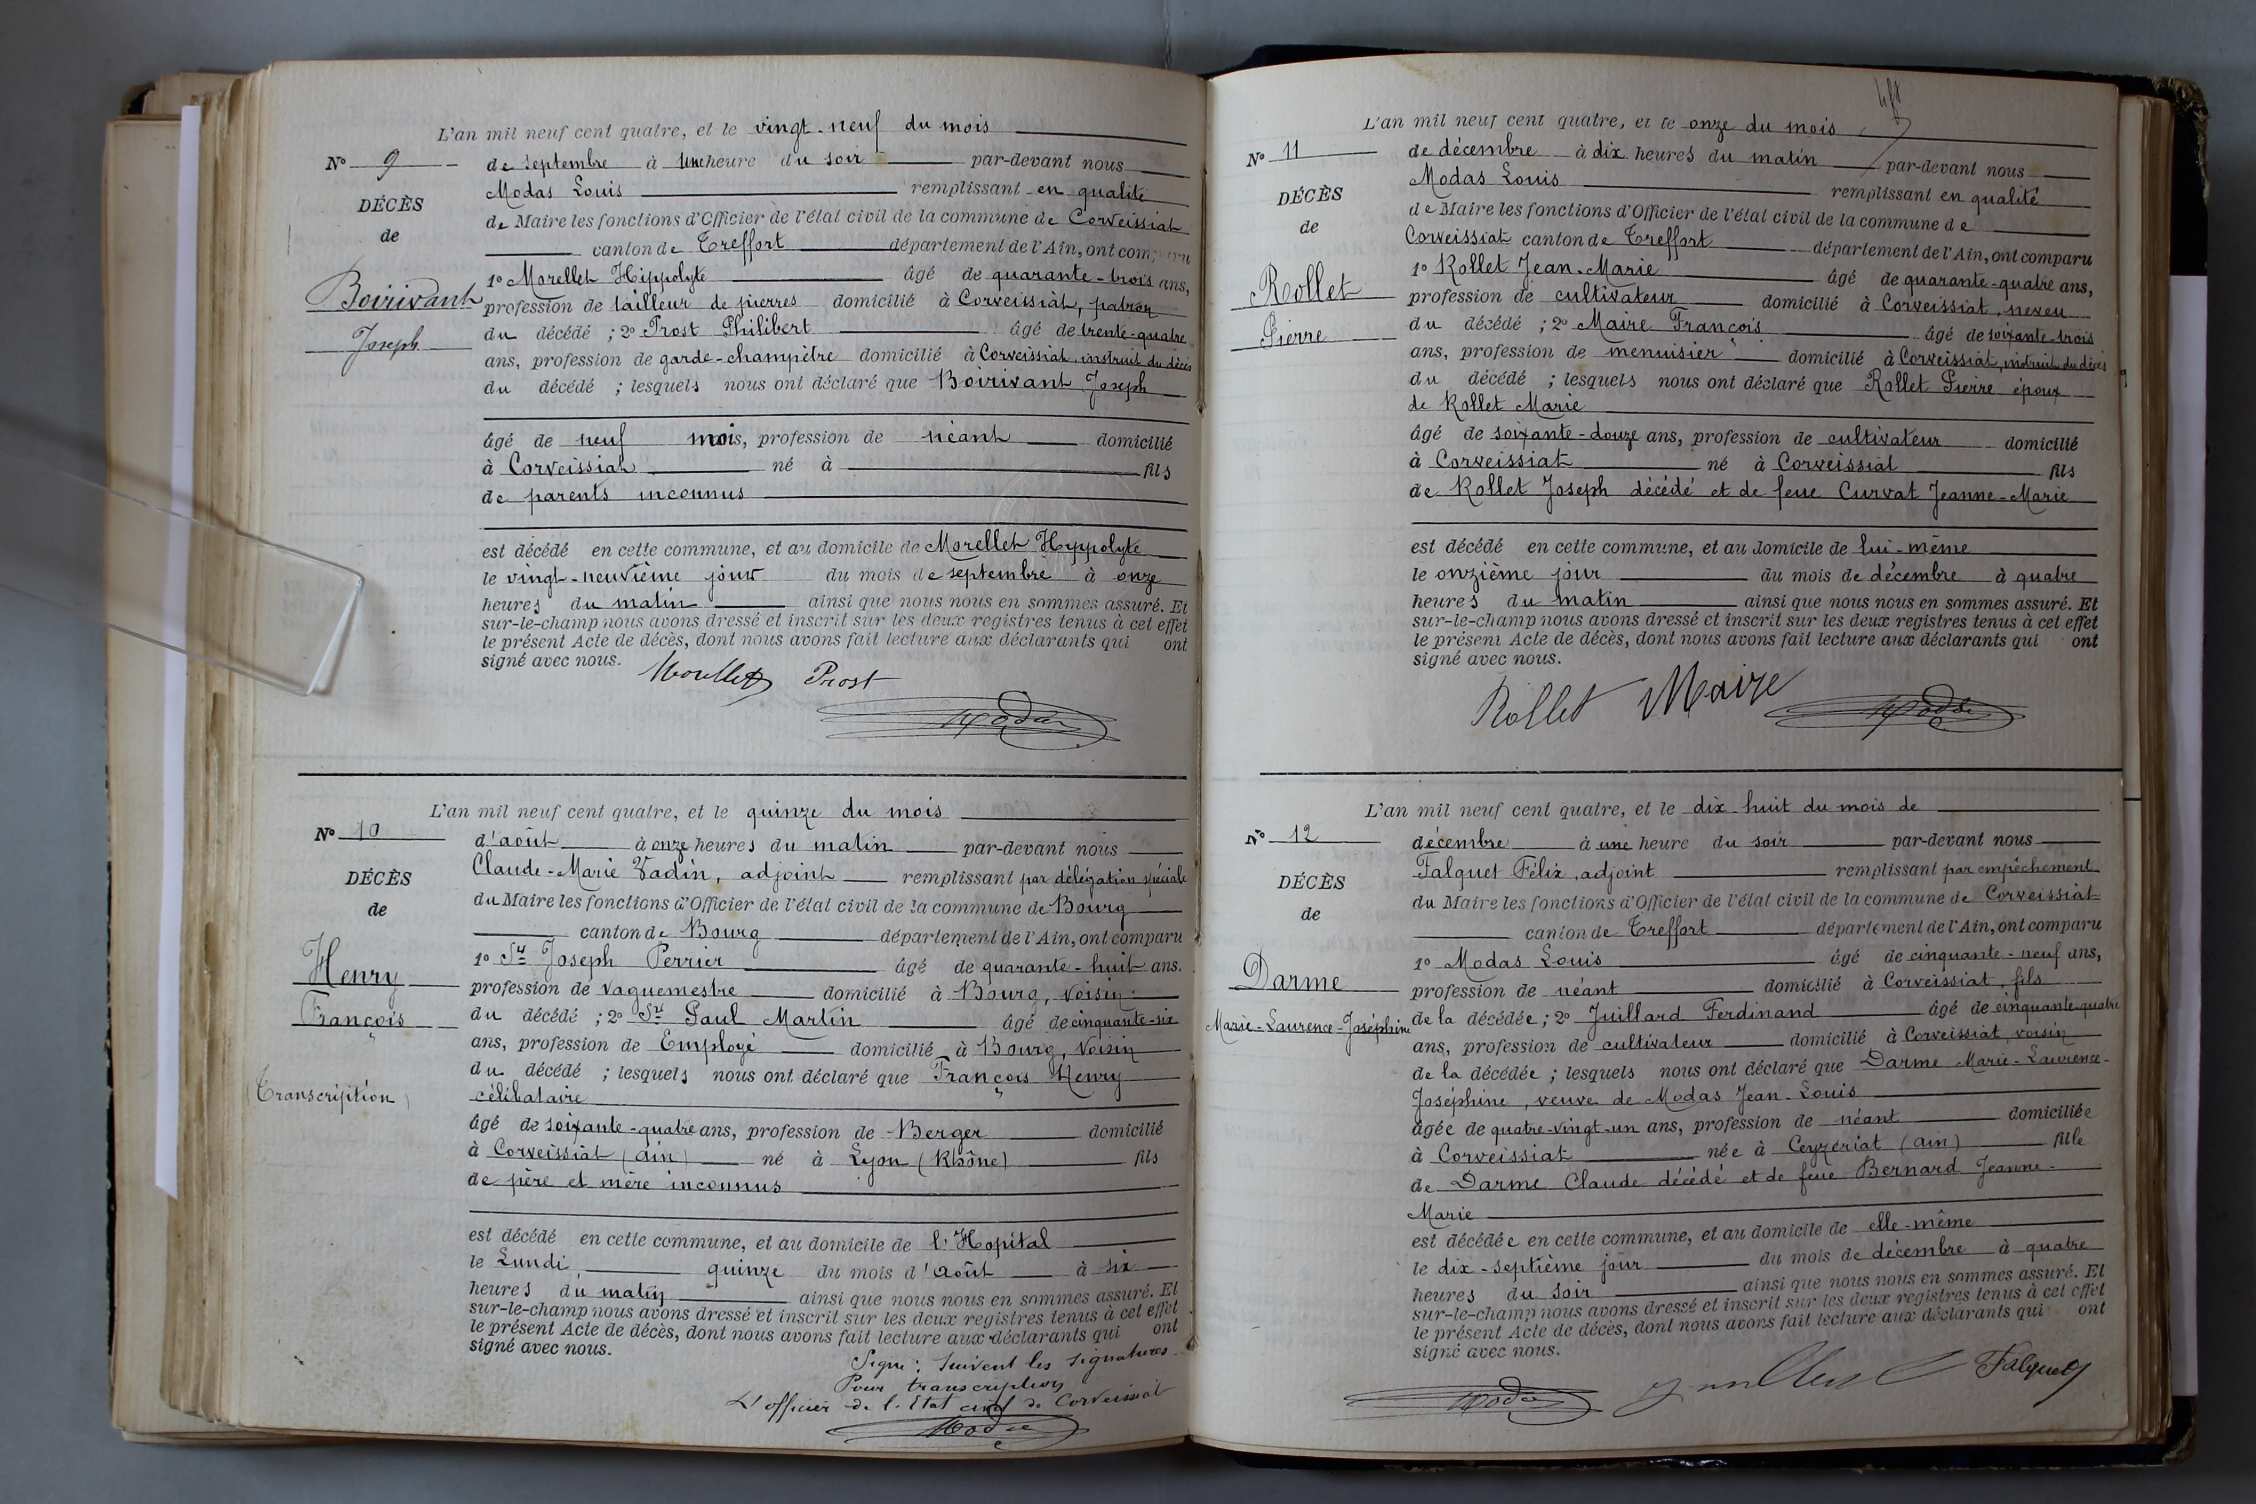 L'an mil neuf cent quatre, et le vingt-neuf du mois
N° 9
de septembre à une heure du soir par-devant nous
Modas Louis remplissant en qualité
DÉCÈS
de Maire les fonctions d'Officier de l'état civil de la commune de Corveissiat
de
canton de Treffort département de l'Ain, ont comparu
1° Morellet Hippolyte âgé de quarante-trois ans,
Boirivant
profession de tailleur de pierres domicilié à Corveissiat, patron
du décédé ; 2° Prost Philibert âgé de trente-quatre
Joseph
ans, profession de garde-champêtre domicilié à Corveissiat, instruit du décès
du décédé ; lesquels nous ont déclaré que Boirivant Joseph
âgé de neuf mois, profession de néant domicilié
à Corveissiat né à fils
de parents inconnus
est décédé en cette commune, et au domicile de Morellet Hyppolyte
le vingt-neuvième jour du mois de septembre à onze
heures du matin ainsi que nous nous en sommes assuré. Et
sur-le-champ nous avons dressé et inscrit sur les deux registres tenus à cet effet
le présent Acte de décès, dont nous avons fait lecture aux déclarants qui ont
signé avec nous.
Morellet Prost
Modas
L'an mil neuf cent quatre, et le quinze du mois
N° 10
d'août à onze heures du matin par-devant nous
Claude-Marie Vadin, adjoint remplissant par délégation spéciale
DÉCÈS
du Maire les fonctions d'Officier de l'état civil de la commune de Bourg
de
canton de Bourg département de l'Ain, ont comparu
1° Sr Joseph Perrier âgé de quarante-huit ans.
Henry
profession de vaguemestre domicilié à Bourg, voisin
du décédé ; 2° Sr Paul Martin âgé de cinquante-six
François
ans, profession de Employé domicilié à Bourg, voisin
du décédé ; lesquels nous ont déclaré que François Henry
(Transcription)
célibataire
âgé de soixante-quatre ans, profession de Berger domicilié
à Corveissiat (ain) né à Lyon (Rhône) fils
de père et mère inconnus
est décédé en cette commune, et au domicile de l'Hopital
le Lundi quinze du mois d'août à six
heures du matin ainsi que nous nous en sommes assuré. Et
sur-le-champ nous avons dressé et inscrit sur les deux registres tenus à cet effet
le présent Acte de décès, dont nous avons fait lecture aux déclarants qui ont
signé avec nous.
Signé : suivent les signatures
Pour transcription
L'officier de l'Etat civil de Corveissiat
Modas
L'an mil neuf cent quatre, et le onze du mois
N° 11
de décembre à dix heures du matin par-devant nous
Modas Louis remplissant en qualité
DÉCÈS
de Maire les fonctions d'Officier de l'état civil de la commune de
de
Corveissiat canton de Treffort département de l'Ain, ont comparu
1° Rollet Jean-Marie âgé de quarante-quatre ans,
Rollet
profession de cultivateur domicilié à Corveissiat, neveu
du décédé ; 2° Maire François âgé de soixante-trois
Pierre
ans, profession de menuisier domicilié à Corveissiat, instruit du décès
du décédé ; lesquels nous ont déclaré que Rollet Pierre époux
de Rollet Marie
âgé de soixante-douze ans, profession de cultivateur domicilié
à Corveissiat né à Corveissiat fils
de Rollet Joseph décédé et de feue Curvat Jeanne-Marie
est décédé en cette commune, et au domicile de lui-même
le onzième jour du mois de décembre à quatre
heures du matin ainsi que nous nous en sommes assuré. Et
sur-le-champ nous avons dressé et inscrit sur les deux registres tenus à cet effet
le présent Acte de décès, dont nous avons fait lecture aux déclarants qui ont
signé avec nous.
Rollet Maire
Modas
L'an mil neuf cent quatre, et le dix-huit du mois de
N° 12
décembre à une heure du soir par-devant nous
Falquet Félix, adjoint remplissant par empêchement
DÉCÈS
du Maire les fonctions d'Officier de l'état civil de la commune de Corveissiat
de
canton de Treffort département de l'Ain, ont comparu
1° Modas Louis âgé de cinquante-neuf ans,
Darme
profession de néant domicilié à Corveissiat, fils
Marie-Laurence-Joséphine
de la décédée ; 2° Juillard Ferdinand âgé de cinquante-quatre
ans, profession de cultivateur domicilié à Corveissiat, voisin
de la décédée ; lesquels nous ont déclaré que Darme Marie-Laurence-
Joséphine, veuve de Modas Jean-Louis
âgée de quatre-vingt-un ans, profession de néant domiciliée
à Corveissiat née à Ceyzériat (ain) fille
de Darme Claude décédé et de feue Bernard Jeanne-
Marie
est décédée en cette commune, et au domicile de elle-même
le dix-septième jour du mois de décembre à quatre
heures du soir ainsi que nous nous en sommes assuré. Et
sur-le-champ nous avons dressé et inscrit sur les deux registres tenus à cet effet
le présent Acte de décès, dont nous avons fait lecture aux déclarants qui ont
signé avec nous.
Modas Falquet